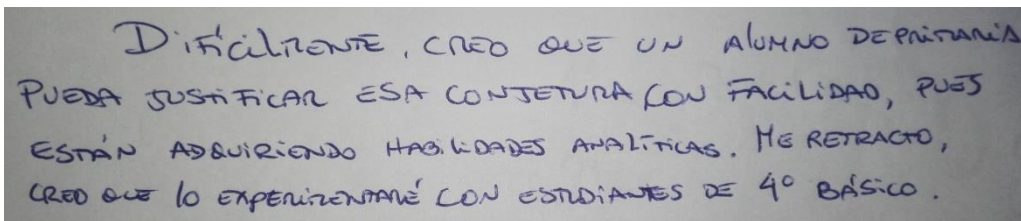 DIFÍCILMENTE, CREO QUE UN ALUMNO DE PRIMARIA
PUEDA JUSTIFICAR ESA CONJETURA CON FACILIDAD, PUES
ESTÁN ADQUIRIENDO HABILIDADES ANALÍTICAS. ME RETRACTO,
CREO QUE LO EXPERIMENTARÉ CON ESTUDIANTES DE 4° BÁSICO.